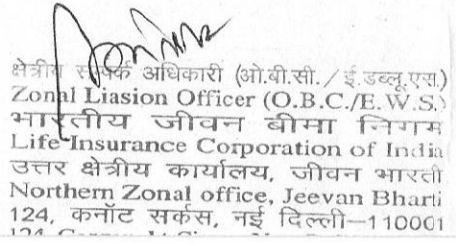 क्षेत्रीय सम्पर्क अधिकारी (ओ.बी.सी. / ई.डब्लू.एस.)
Zonal Liasion Officer (O.B.C./E.W.S.)
भारतीय जीवन बीमा निगम
Life Insurance Corporation of India
उत्तर क्षेत्रीय कार्यालय, जीवन भारती
Northern Zonal office, Jeevan Bharti
124, कनॉट सर्कस, नई दिल्ली–110001